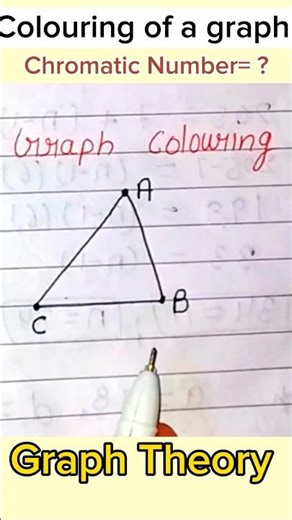 Colouring of a graph
Chromatic Number= ?
Graph Colouring
A
B
C
Graph Theory